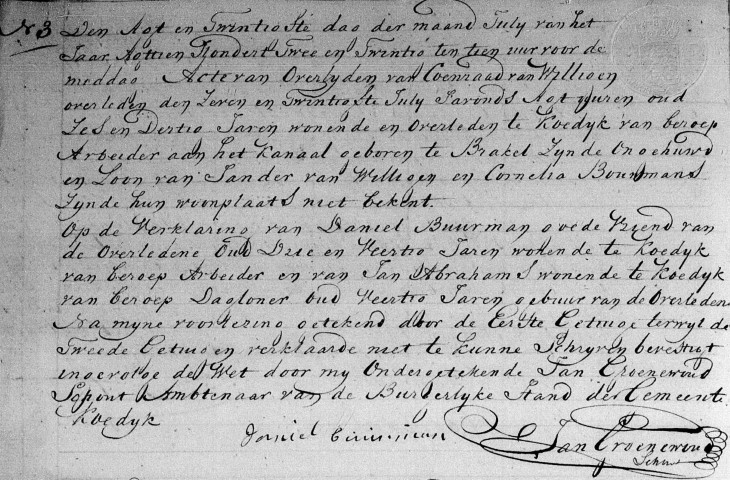 N 3 Den Agt en Twintigste dag der maand July van het
Jaar Agttien Hondert Twee en Twintig ten tien uur voor de
meddag Acte van Overlyden van Coenraad van Willigen
overleden den Zeven en Twintigste July s'avonds Agt uuren oud
Zes en Dertig Jaren wonende en Overleden te Koedyk van beroep
Arbeider aan het Kanaal geboren te Brakel Zynde Ongehuwd
en Zoon van Sander van Willigen en Cornelia Bouwmans
Zynde hun woonplaats niet bekent.
Op de Verklaring van Daniel Buurman goede Vriend van
de Overledene Oud Drie en Veertig Jaren wonende te Koedyk
van beroep Arbeider en van Jan Abrahams wonende te Koedyk
van beroep Dagloner oud Veertig Jaren gebuur van de Overleden
Na myne voorlezing getekend door de Eerste Getuige terwyl de
Tweede Getuigen verklaarde niet te kunne Schryven bevestigt
ingevolge de Wet door my Ondergetekende Jan Groenewoud
Ambtenaar van de Burgerlyke Stand der Gemeente
Koedyk
Daniel Jan Groenewoud